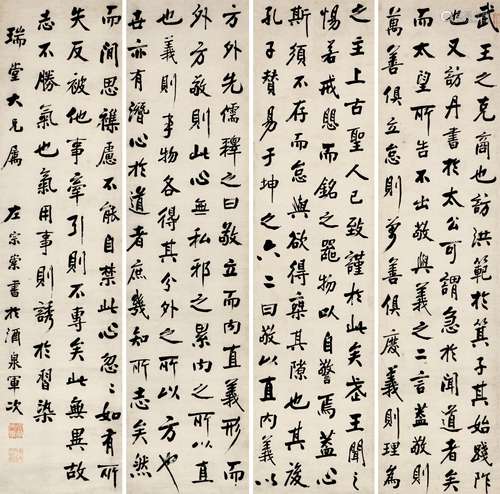 武王之克商也訪洪範於箕子其始踐阼
也又訪丹書於太公可謂急於聞道者矣
而太望所告不出敬與義之二言蓋敬則
萬善俱立怠則萬善俱廢義則理為
之主上古聖人已致謹於此矣武王聞之
惕若戒懼而銘之器物以自警焉蓋心
斯須不存而怠與欲得乘其隙也其後
孔子贊易于坤之六二曰敬以直內義以
方外先儒釋之曰敬立而內直義形而
外方敬則此心無私邪之累內之所以直
也義則事物各得其分外之所以方也
世亦有潛心於道者庶幾知所志矣然
而閒思襍慮不能自禁此心忽忽如有所
失反被他事牽引則不專矣此無異故
志不勝氣也氣用事則誘於習染
瑞堂大兄屬 左宗棠書於酒泉軍次